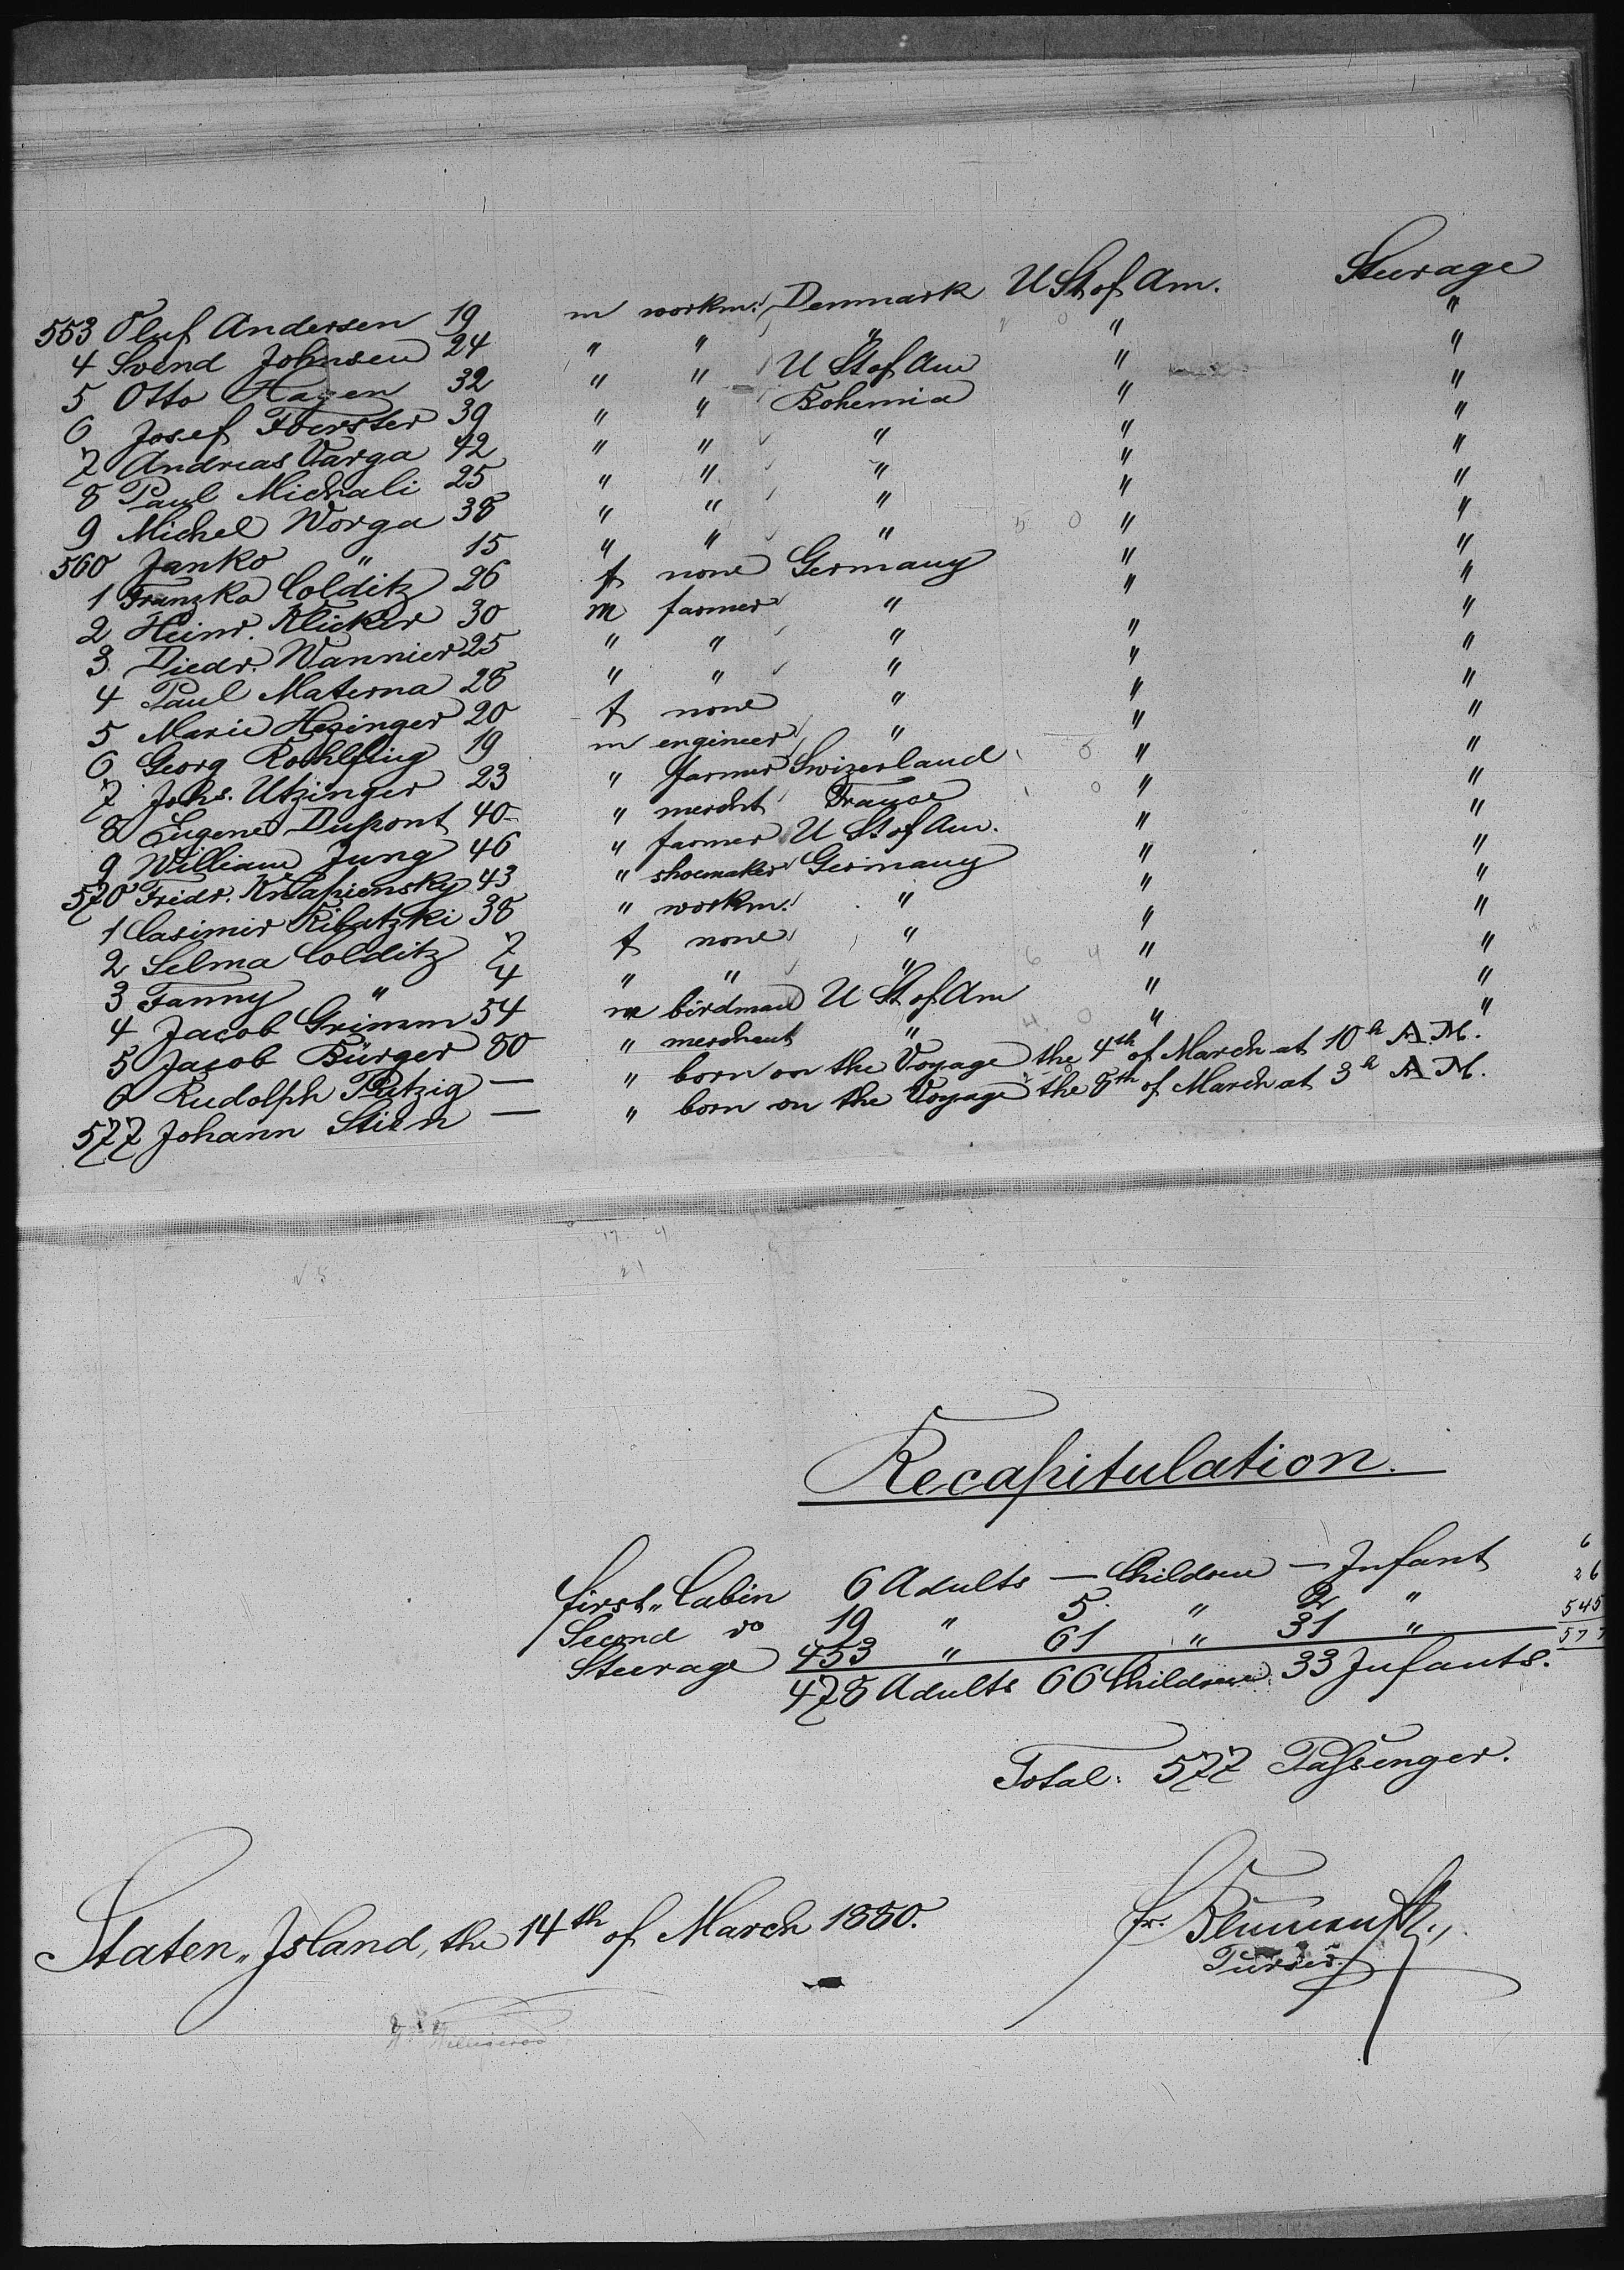 553 Oluf Andersen 19 m workm. Denmark U St of Am. Steerage
4 Svend Johnsen 24 " " " " "
5 Otto Hagen 32 " " U St of Am " "
6 Josef Foerster 39 " " Bohemia " "
7 Andreas Varga 42 " " " " "
8 Paul Michali 25 " " " " "
9 Michel Worga 38 " " " " "
560 Janko " 15 " " " " "
1 Franzka Colditz 26 f none Germany " "
2 Heinr. Klicker 30 m farmer " " "
3 Diedr. Wannier 25 " " " " "
4 Paul Materna 28 " " " " "
5 Marie Hezinger 20 f none " " "
6 Georg Rohlfing 19 m engineer " " "
7 Johs. Utzinger 23 " farmer Swizerland " "
8 Eugene Dupont 40 " mercht France " "
9 William Jung 46 " farmer U St of Am. " "
570 Fridr. 43 " shoemaker Germany " "
1 Casimir Ribatzki 38 " workm. " " "
2 Selma Colditz 7 f none " " "
3 Fanny " 4 " " " " "
4 Jacob Grimm 54 m birdman U St of Am " "
5 Jacob Bürger 80 " merchant " " "
6 Rudolph Petzig — " born on the Voyage the 4th of March at 10h A.M.
577 Johann Stien — " born on the Voyage the 8th of March at 3h A M.
17 4
21
Recapitulation.
first Cabin 6 Adults — Children — Infant 6
Second do 19 " 5 " 2 " 26
Steerage 453 " 61 " 31 " 545
478 Adults 66 Children 33 Infants. 577
Total: 577 Passenger.
Staten Island, the 14th of March 1880.
fr.
Purser.